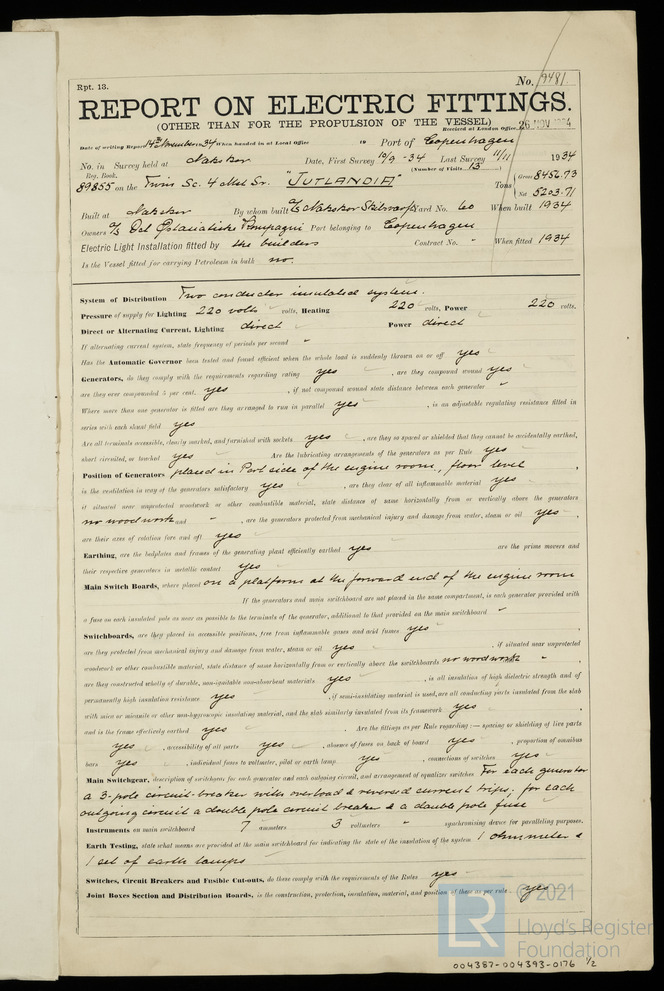 Rpt. 13.
No. 9481
REPORT ON ELECTRIC FITTINGS.
(OTHER THAN FOR THE PROPULSION OF THE VESSEL)
Received at London Office 26 NOV 1934
Date of writing Report 14th November 1934 When handed in at Local Office 19 Port of Copenhagen
No. in Survey held at Nakskov Date, First Survey 10/3 -34 Last Survey 11/11 1934
Reg. Book. (Number of Visits 13)
89855 on the Twin Sc. 4 Mst Sr. "JUTLANDIA" Tons Gross 8456.73
Net 5203.71
Built at Nakskov By whom built A/S Nakskov Skibsværft Yard No. 60 When built 1934
Owners A/S Det Østasiatiske Kompagni Port belonging to Copenhagen
Electric Light Installation fitted by the builders Contract No. " When fitted 1934
Is the Vessel fitted for carrying Petroleum in bulk no.
System of Distribution Two conductor insulated system.
Pressure of supply for Lighting 220 volts volts, Heating 220 volts, Power 220 volts.
Direct or Alternating Current, Lighting direct Power direct
If alternating current system, state frequency of periods per second "
Has the Automatic Governor been tested and found efficient when the whole load is suddenly thrown on or off yes
Generators, do they comply with the requirements regarding rating yes, are they compound wound yes
are they over compounded 5 per cent. yes, if not compound wound state distance between each generator "
Where more than one generator is fitted are they arranged to run in parallel yes, is an adjustable regulating resistance fitted in
series with each shunt field yes
Are all terminals accessible, clearly marked, and furnished with sockets yes, are they so spaced or shielded that they cannot be accidentally earthed,
short circuited, or touched yes Are the lubricating arrangements of the generators as per Rule yes
Position of Generators placed in Port side of the engine room, floor level
is the ventilation in way of the generators satisfactory yes, are they clear of all inflammable material yes
if situated near unprotected woodwork or other combustible material, state distance of same horizontally from or vertically above the generators
no woodwork and ", are the generators protected from mechanical injury and damage from water, steam or oil yes,
are their axes of rotation fore and aft yes
Earthing, are the bedplates and frames of the generating plant efficiently earthed yes are the prime movers and
their respective generators in metallic contact yes
Main Switch Boards, where placed on a platform at the forward end of the engine room
If the generators and main switchboard are not placed in the same compartment, is each generator provided with
a fuse on each insulated pole as near as possible to the terminals of the generator, additional to that provided on the main switchboard "
Switchboards, are they placed in accessible positions, free from inflammable gases and acid fumes yes,
are they protected from mechanical injury and damage from water, steam or oil yes, if situated near unprotected
woodwork or other combustible material, state distance of same horizontally from or vertically above the switchboards no woodwork "
are they constructed wholly of durable, non-ignitable non-absorbent materials yes, is all insulation of high dielectric strength and of
permanently high insulation resistance yes, if semi-insulating material is used, are all conducting parts insulated from the slab
with mica or micanite or other non-hygroscopic insulating material, and the slab similarly insulated from its framework yes,
and is the frame effectively earthed yes Are the fittings as per Rule regarding:— spacing or shielding of live parts
yes, accessibility of all parts yes, absence of fuses on back of board yes, proportion of omnibus
bars yes, individual fuses to voltmeter, pilot or earth lamp yes, connections of switches yes
Main Switchgear, description of switchgear for each generator and each outgoing circuit, and arrangement of equalizer switches For each generator
a 3-pole circuit-breaker with overload & reversed current trips; for each
outgoing circuit a double pole circuit breaker & a double pole fuse
Instruments on main switchboard 7 ammeters 3 voltmeters " synchronising device for paralleling purposes.
Earth Testing, state what means are provided at the main switchboard for indicating the state of the insulation of the system 1 ohmmeter &
1 set of earth lamps
Switches, Circuit Breakers and Fusible Cut-outs, do these comply with the requirements of the Rules yes
Joint Boxes Section and Distribution Boards, is the construction, protection, insulation, material, and position of these as per rule yes
© 2021
LR
Lloyd's Register
Foundation
004387-004393-0176 1/2